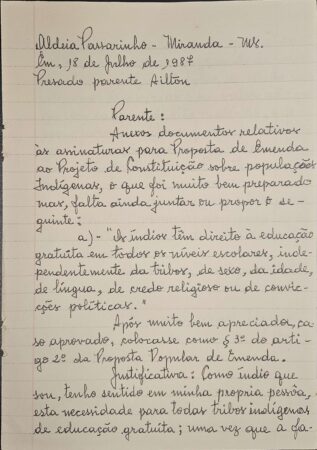 Aldeia Passarinho - Miranda - Ms.
Em, 18 de Julho de 1987
Presado parente Ailton
Parente:
Anexos documentos relativos
às assinaturas para Proposta de Emenda
ao Projeto de Constituição sobre populações
Indígenas, o que foi muito bem preparado
mas, falta ainda juntar ou propor o se-
guinte:
a) - "Os índios têm direito à educação
gratuita em todos os níveis escolares, inde-
pendentemente da tribos, de sexo, da idade,
de língua, de credo religioso ou de convic-
ções políticas."
Após muito bem apreciador, ca-
so aprovado, colocasse como § 3º do arti-
go 2º da Proposta Popular de Emenda.
Justificativa: Como índio que
sou, tenho sentido em minha propria pessôa,
esta necessidade para todas tribos indígenas
de educação gratuita; uma vez que a fa-